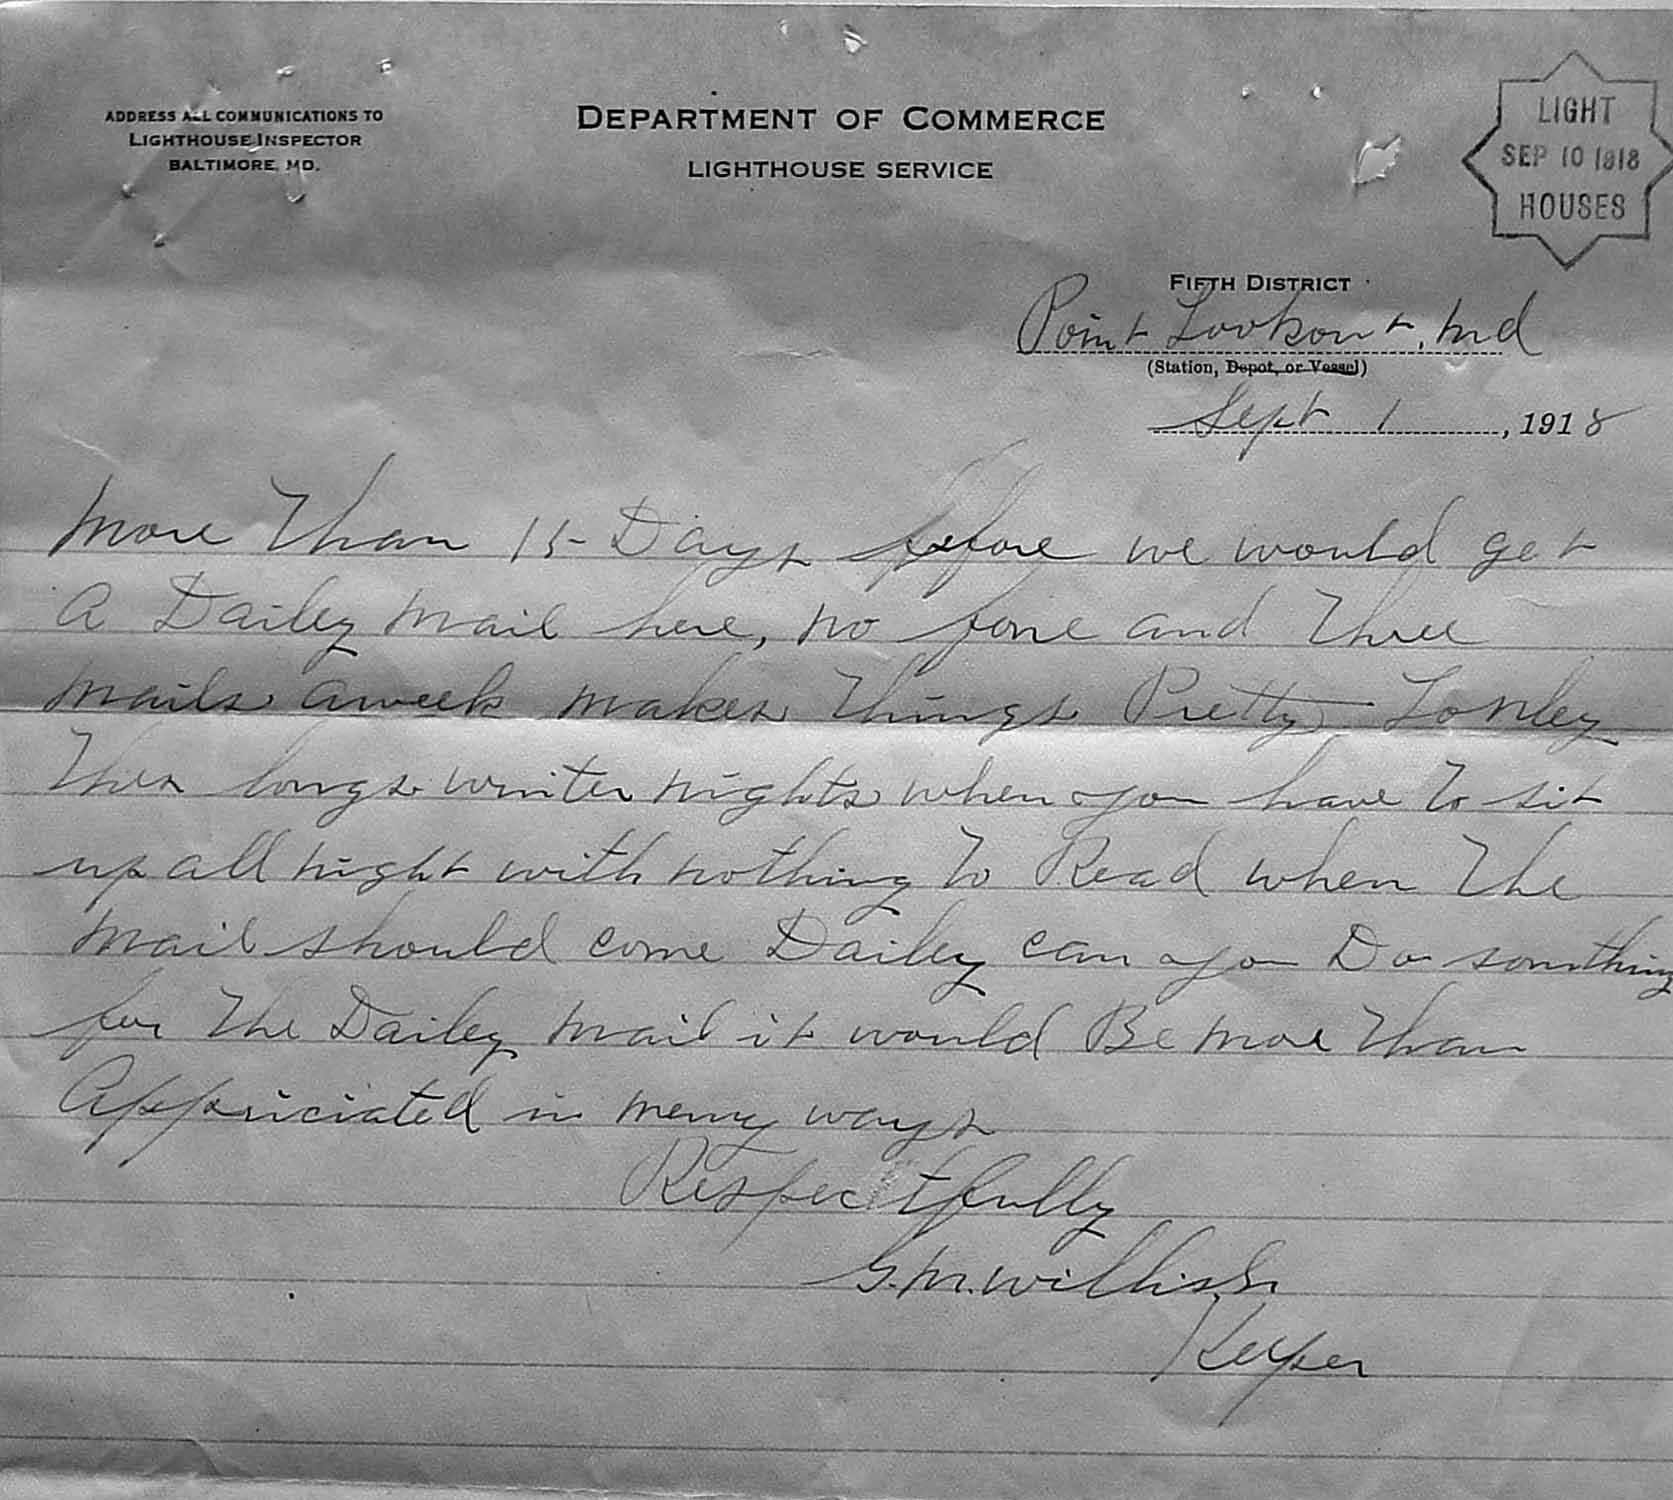 ADDRESS ALL COMMUNICATIONS TO
LIGHTHOUSE INSPECTOR
BALTIMORE, MD.
DEPARTMENT OF COMMERCE
LIGHTHOUSE SERVICE
LIGHT
SEP 10 1918
HOUSES
FIFTH DISTRICT
Point Lookout, Md
(Station, Depot, or Vessel)
Sept 1, 1918
More Than 15 Days before we would get
a Dailey mail here, no fone and Three
mails aweek makes Things Pretty Lonley
Thes longs winter nights when you have to sit
up all night with nothing to Read when The
mail should come Dailey can you Do something
for The Dailey mail it would Be more Than
Appriciated in meny ways
Respectfully
G.M. Willis Sr
Keeper